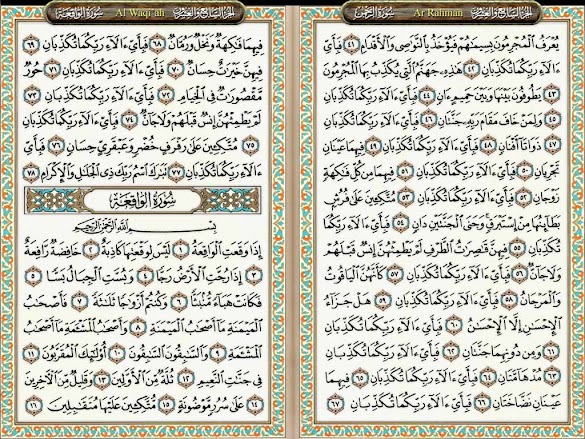 الجزء السابع والعشرون Ar Rahman سورة الرحمن
يُعْرَفُ ٱلْمُجْرِمُونَ بِسِيمَٰهُمْ فَيُؤْخَذُ بِٱلنَّوَٰصِى وَٱلْأَقْدَامِ ٤١ فَبِأَىِّ
ءَالَآءِ رَبِّكُمَا تُكَذِّبَانِ ٤٢ هَٰذِهِۦ جَهَنَّمُ ٱلَّتِى يُكَذِّبُ بِهَا ٱلْمُجْرِمُونَ
٤٣ يَطُوفُونَ بَيْنَهَا وَبَيْنَ حَمِيمٍ ءَانٍ ٤٤ فَبِأَىِّ ءَالَآءِ رَبِّكُمَا تُكَذِّبَانِ
٤٥ وَلِمَنْ خَافَ مَقَامَ رَبِّهِۦ جَنَّتَانِ ٤٦ فَبِأَىِّ ءَالَآءِ رَبِّكُمَا تُكَذِّبَانِ
٤٧ ذَوَاتَآ أَفْنَانٍ ٤٨ فَبِأَىِّ ءَالَآءِ رَبِّكُمَا تُكَذِّبَانِ ٤٩ فِيهِمَا عَيْنَانِ
تَجْرِيَانِ ٥٠ فَبِأَىِّ ءَالَآءِ رَبِّكُمَا تُكَذِّبَانِ ٥١ فِيهِمَا مِن كُلِّ فَٰكِهَةٍ
زَوْجَانِ ٥٢ فَبِأَىِّ ءَالَآءِ رَبِّكُمَا تُكَذِّبَانِ ٥٣ مُتَّكِـِٔينَ عَلَىٰ فُرُشٍۭ
بَطَآئِنُهَا مِنْ إِسْتَبْرَقٍ وَجَنَى ٱلْجَنَّتَيْنِ دَانٍ ٥٤ فَبِأَىِّ ءَالَآءِ رَبِّكُمَا
تُكَذِّبَانِ ٥٥ فِيهِنَّ قَٰصِرَٰتُ ٱلطَّرْفِ لَمْ يَطْمِثْهُنَّ إِنسٌ قَبْلَهُمْ
وَلَا جَآنٌّ ٥٦ فَبِأَىِّ ءَالَآءِ رَبِّكُمَا تُكَذِّبَانِ ٥٧ كَأَنَّهُنَّ ٱلْيَاقُوتُ
وَٱلْمَرْجَانُ ٥٨ فَبِأَىِّ ءَالَآءِ رَبِّكُمَا تُكَذِّبَانِ ٥٩ هَلْ جَزَآءُ
ٱلْإِحْسَٰنِ إِلَّا ٱلْإِحْسَٰنُ ٦٠ فَبِأَىِّ ءَالَآءِ رَبِّكُمَا تُكَذِّبَانِ
٦١ وَمِن دُونِهِمَا جَنَّتَانِ ٦٢ فَبِأَىِّ ءَالَآءِ رَبِّكُمَا تُكَذِّبَانِ
٦٣ مُدْهَآمَّتَانِ ٦٤ فَبِأَىِّ ءَالَآءِ رَبِّكُمَا تُكَذِّبَانِ ٦٥ فِيهِمَا
عَيْنَانِ نَضَّاخَتَانِ ٦٦ فَبِأَىِّ ءَالَآءِ رَبِّكُمَا تُكَذِّبَانِ ٦٧
الجزء السابع والعشرون Al Waqi'ah سورة الواقعة
فِيهِمَا فَٰكِهَةٌ وَنَخْلٌ وَرُمَّانٌ ٦٨ فَبِأَىِّ ءَالَآءِ رَبِّكُمَا تُكَذِّبَانِ ٦٩
فِيهِنَّ خَيْرَٰتٌ حِسَانٌ ٧٠ فَبِأَىِّ ءَالَآءِ رَبِّكُمَا تُكَذِّبَانِ ٧١ حُورٌ
مَّقْصُورَٰتٌ فِى ٱلْخِيَامِ ٧٢ فَبِأَىِّ ءَالَآءِ رَبِّكُمَا تُكَذِّبَانِ ٧٣
لَمْ يَطْمِثْهُنَّ إِنسٌ قَبْلَهُمْ وَلَا جَآنٌّ ٧٤ فَبِأَىِّ ءَالَآءِ رَبِّكُمَا تُكَذِّبَانِ
٧٥ مُتَّكِـِٔينَ عَلَىٰ رَفْرَفٍ خُضْرٍ وَعَبْقَرِىٍّ حِسَانٍ ٧٦ فَبِأَىِّ
ءَالَآءِ رَبِّكُمَا تُكَذِّبَانِ ٧٧ تَبَٰرَكَ ٱسْمُ رَبِّكَ ذِى ٱلْجَلَٰلِ وَٱلْإِكْرَامِ ٧٨
سُورَةُ الوَاقِعَة
بِسْمِ ٱللَّهِ ٱلرَّحْمَٰنِ ٱلرَّحِيمِ
إِذَا وَقَعَتِ ٱلْوَاقِعَةُ ١ لَيْسَ لِوَقْعَتِهَا كَاذِبَةٌ ٢ خَافِضَةٌ رَّافِعَةٌ
٣ إِذَا رُجَّتِ ٱلْأَرْضُ رَجًّا ٤ وَبُسَّتِ ٱلْجِبَالُ بَسًّا ٥
فَكَانَتْ هَبَآءً مُّنۢبَثًّا ٦ وَكُنتُمْ أَزْوَٰجًا ثَلَٰثَةً ٧ فَأَصْحَٰبُ
ٱلْمَيْمَنَةِ مَآ أَصْحَٰبُ ٱلْمَيْمَنَةِ ٨ وَأَصْحَٰبُ ٱلْمَشْـَٔمَةِ مَآ أَصْحَٰبُ
ٱلْمَشْـَٔمَةِ ٩ وَٱلسَّٰبِقُونَ ٱلسَّٰبِقُونَ ١٠ أُو۟لَٰٓئِكَ ٱلْمُقَرَّبُونَ ١١
فِى جَنَّٰتِ ٱلنَّعِيمِ ١٢ ثُلَّةٌ مِّنَ ٱلْأَوَّلِينَ ١٣ وَقَلِيلٌ مِّنَ ٱلْءَاخِرِينَ
١٤ عَلَىٰ سُرُرٍ مَّوْضُونَةٍ ١٥ مُّتَّكِـِٔينَ عَلَيْهَا مُتَقَٰبِلِينَ ١٦